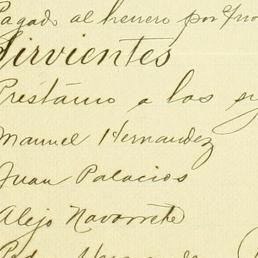 Pagado al herrero por
Sirvientes
Préstamo a los
Manuel Hernandez
Juan Palacios
Alejo Navarrete